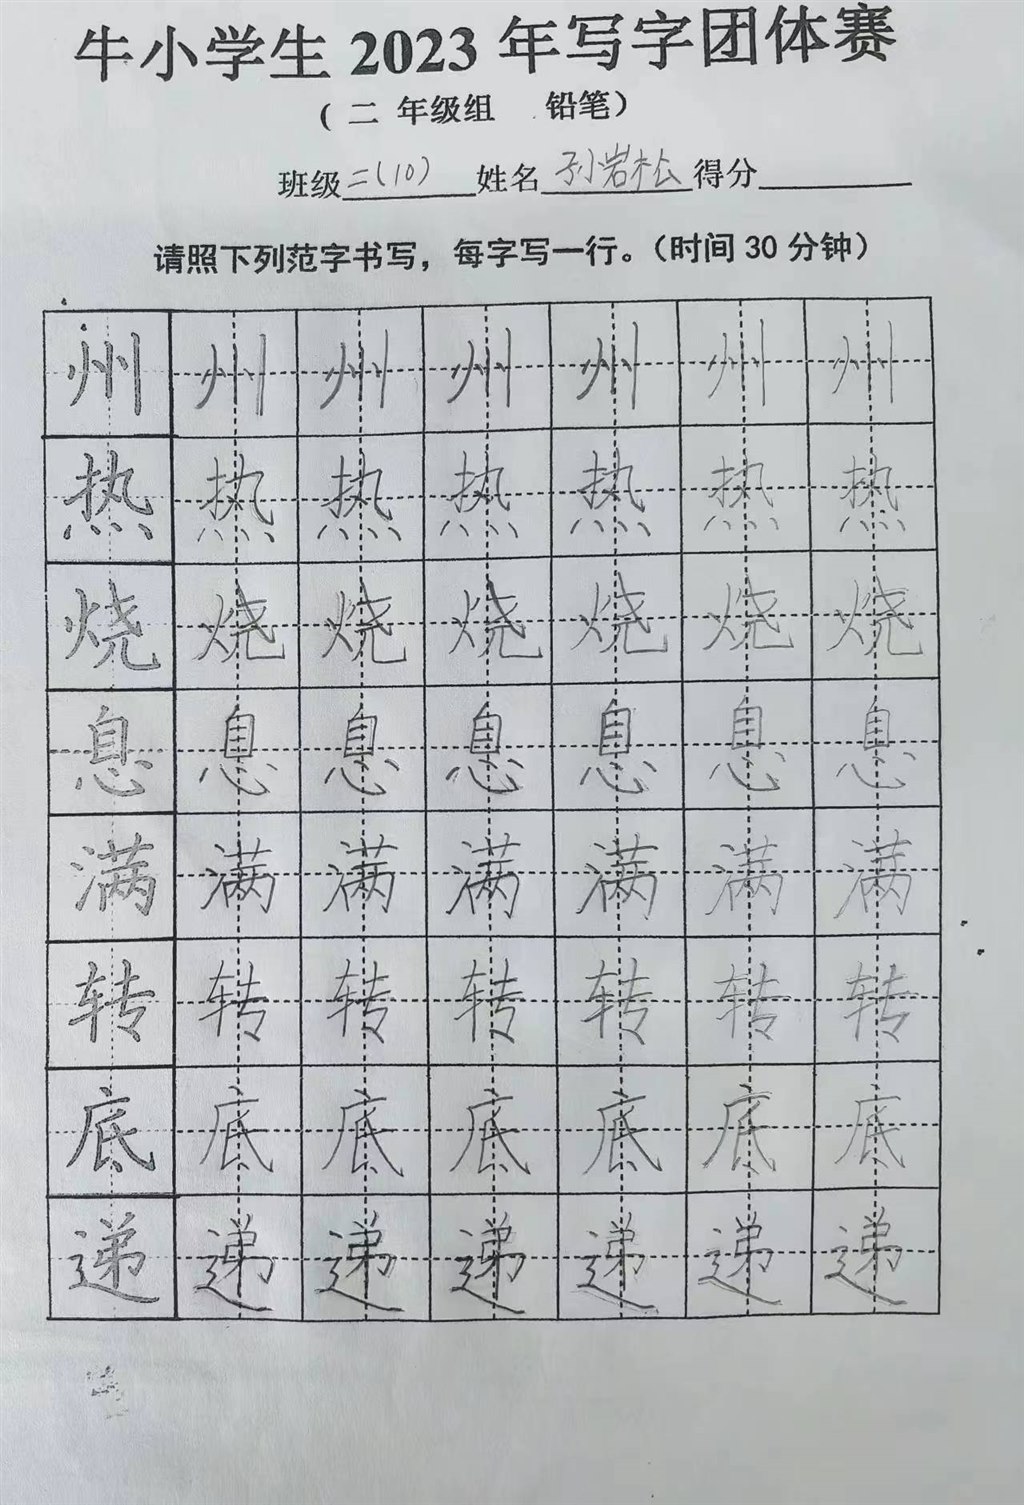 牛小学生 2023 年写字团体赛
( 二 年级组 铅笔）
班级二(10) 姓名 孙岩松 得分
请照下列范字书写，每字写一行。（时间 30 分钟）
州 州 州 州 州 州 州
热 热 热 热 热 热 热
烧 烧 烧 烧 烧 烧 烧
息 息 息 息 息 息 息
满 满 满 满 满 满 满
转 转 转 转 转 转 转
底 底 底 底 底 底 底
递 递 递 递 递 递 递